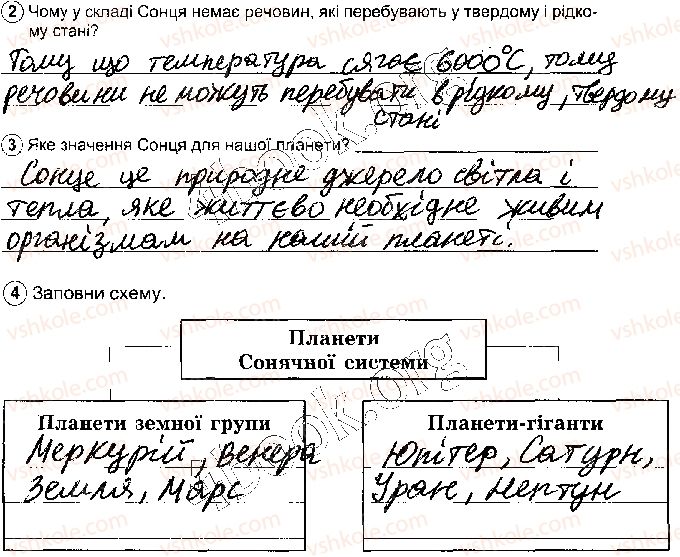 2 Чому у складі Сонця немає речовин, які перебувають у твердому і рідко-
му стані?
Тому що температура сягає 6000°С, тому
речовини не можуть перебувати в рідкому, твердому
стані
3 Яке значення Сонця для нашої планети?
Сонце це природне джерело світла і
тепла, яке життєво необхідне живим
організмам на нашій планеті.
4 Заповни схему.
Планети
Сонячної системи
Планети земної групи
Меркурій, Венера
Земля, Марс
Планети-гіганти
Юпітер, Сатурн,
Уран, Нептун
vshkole.com
4book.org